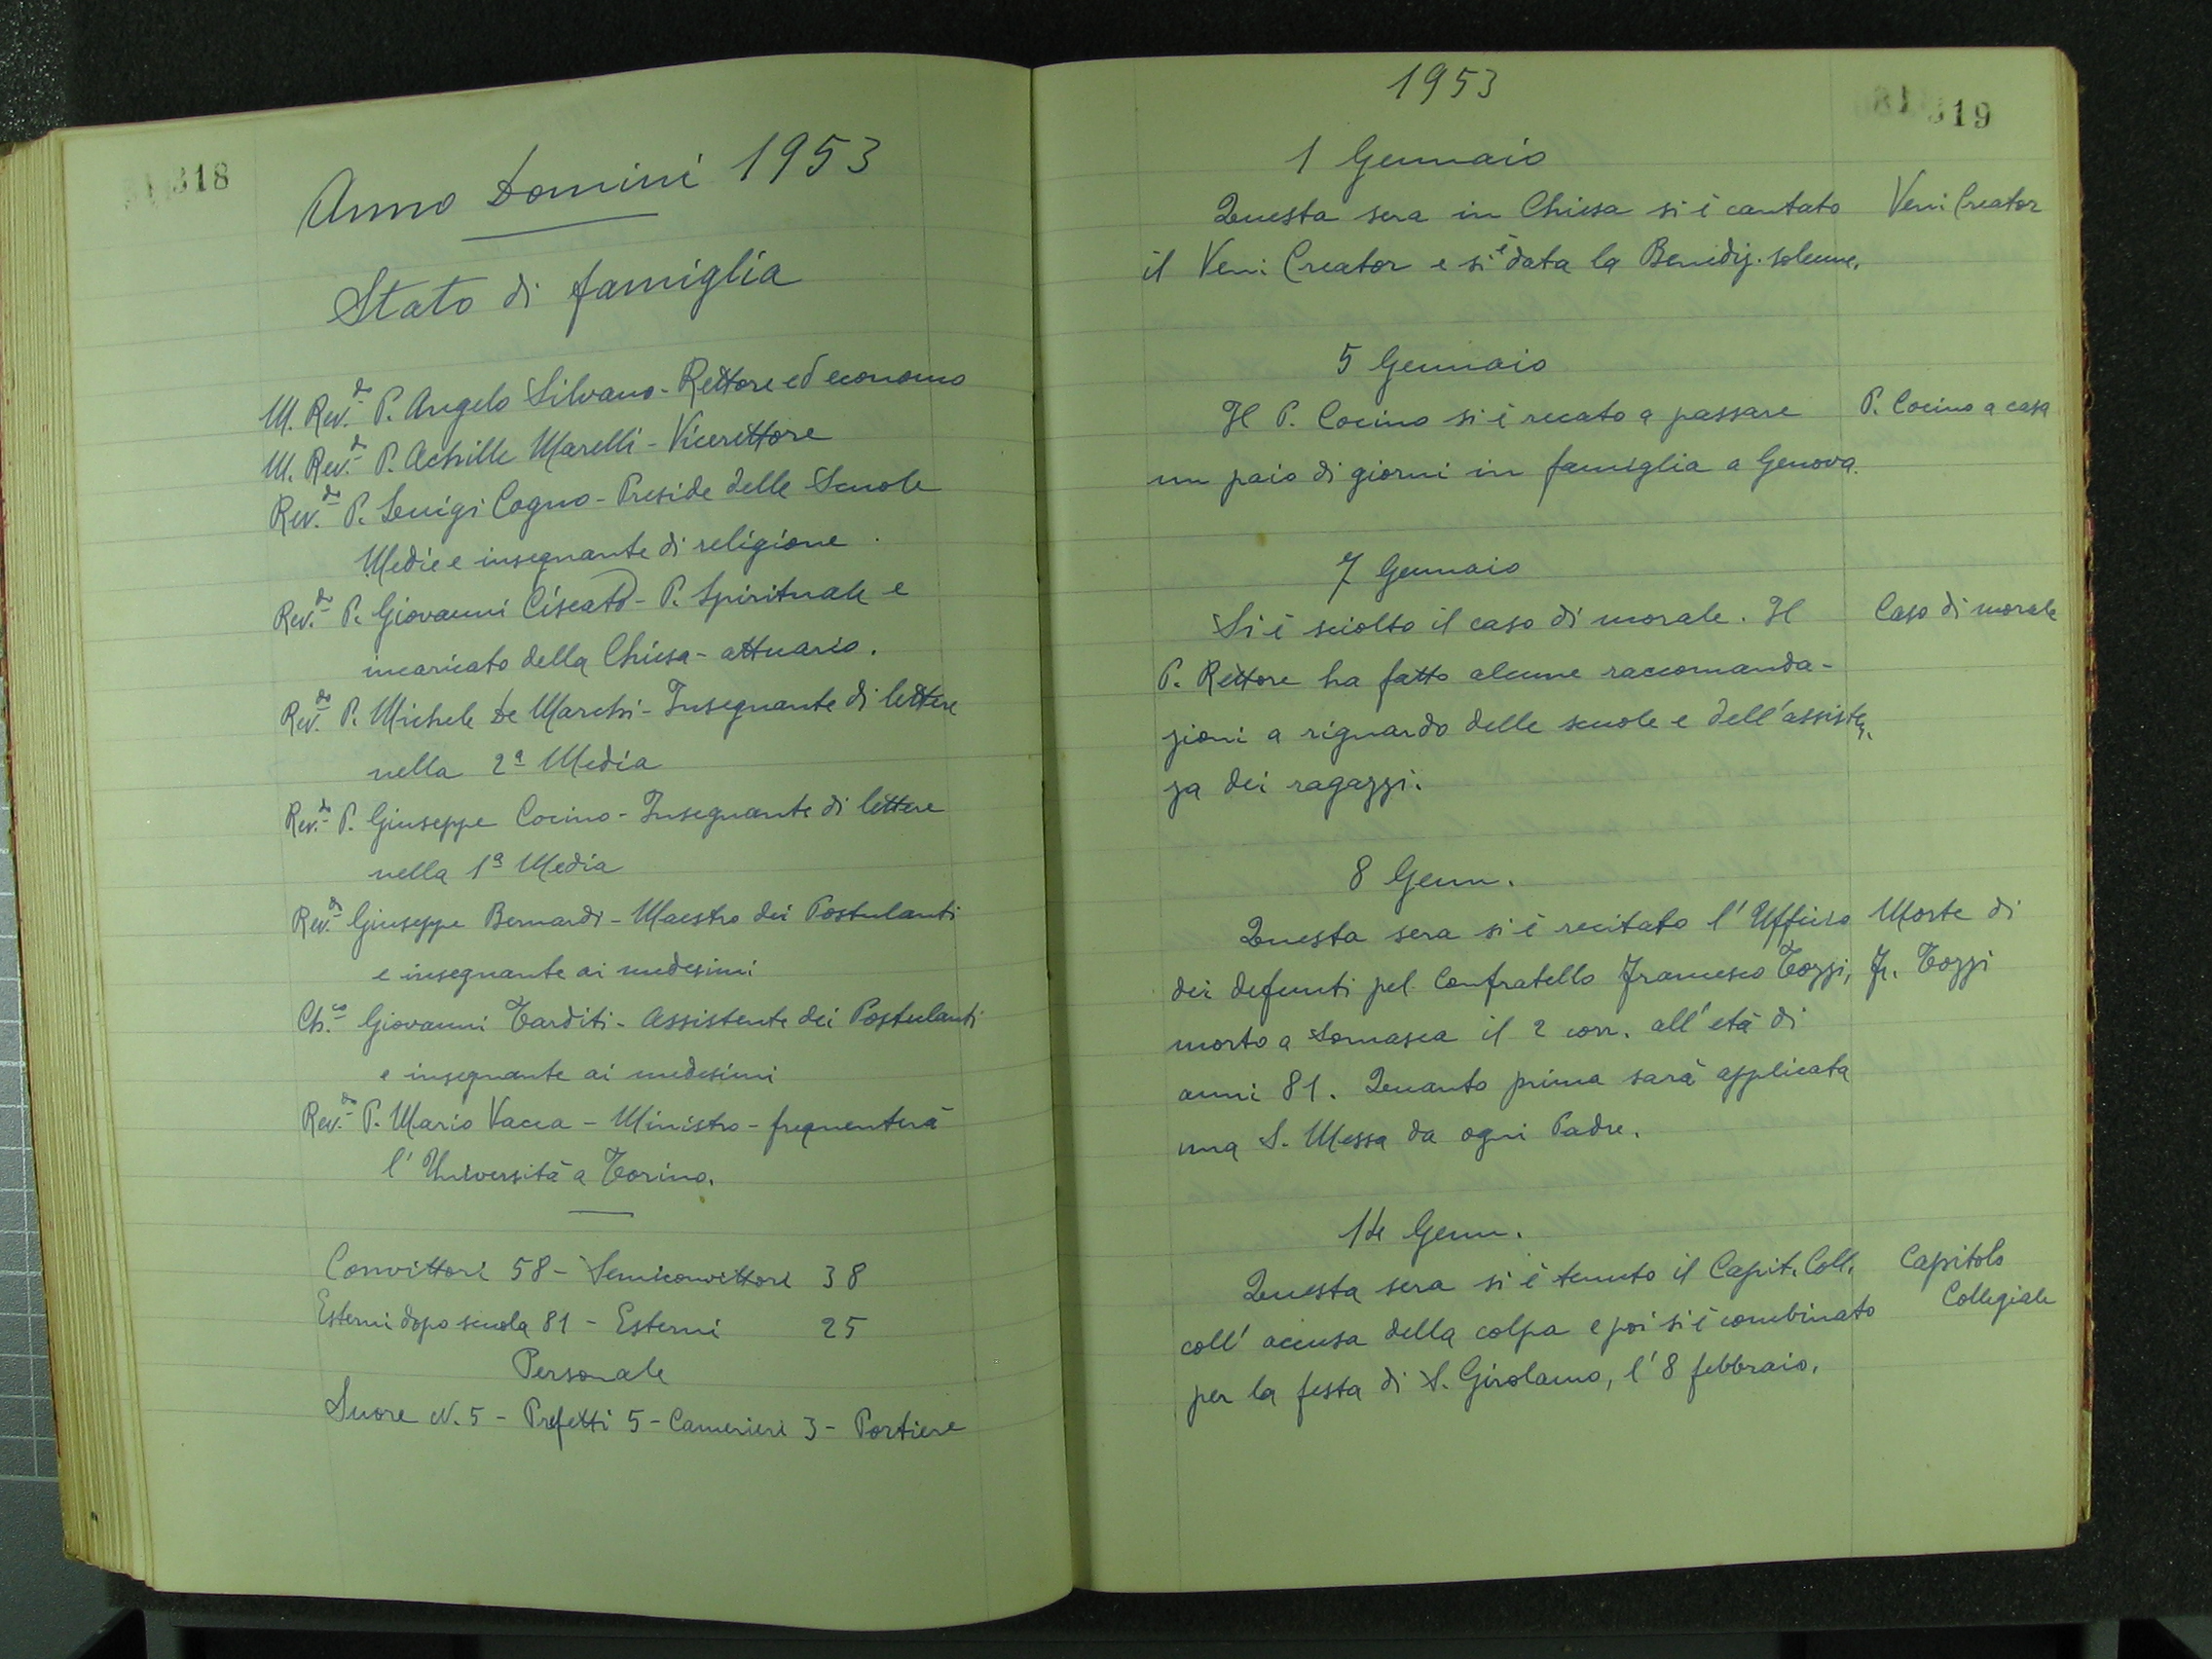 318
Anno Domini 1953
Stato di famiglia
M. Rev.do P. Angelo Silvano - Rettore ed economo
M. Rev.do P. Achille Marelli - Vicerettore
Rev.do P. Luigi Cogno - Preside delle Scuole
Medie e insegnante di religione.
Rev.do P. Giovanni Ciscato - P. Spirituale e
incaricato della Chiesa - attuario.
Rev.do P. Michele De Marchi - Insegnante di lettere
nella 2ª Media
Rev.do P. Giuseppe Cocino - Insegnante di lettere
nella 1ª Media
Rev.do Giuseppe Bernardi - Maestro dei Postulanti
e insegnante ai medesimi
Ch.co Giovanni Tarditi - Assistente dei Postulanti
e insegnante ai medesimi
Rev.do P. Mario Vacca - Ministro - frequenterà
l'Università a Torino.
Convittori 58 - Semiconvittori 38
Esterni dopo scuola 81 - Esterni 25
Personale
Suore N. 5 - Prefetti 5 - Camerieri 3 - Portiere
1953
319
1 Gennaio
Questa sera in Chiesa si è cantato
Veni Creator
il Veni Creator e si è data la Bendiz. solenne.
5 Gennaio
Il P. Cocino si è recato a passare
P. Cocino a casa
un paio di giorni in famiglia a Genova.
7 Gennaio
Si è sciolto il caso di morale. Il
Caso di morale
P. Rettore ha fatto alcune raccomanda-
zioni a riguardo delle scuole e dell'assisten-
za dei ragazzi.
8 Genn.
Questa sera si è recitato l'Ufficio
Morte di
dei defunti pel Confratello Francesco Tozzi,
Fr. Tozzi
morto a Somasca il 2 corr. all'età di
anni 81. Quanto prima sarà applicata
una S. Messa da ogni Padre.
14 Genn.
Questa sera si è tenuto il Capit. Coll.
Capitolo
Collegiale
coll' accusa della colpa e poi si è combinato
per la festa di S. Girolamo, l'8 febbraio.